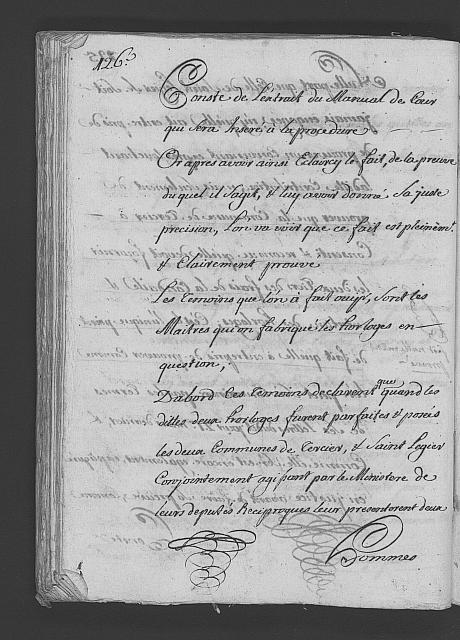 126.
Conste de L'extrait du Manual de Cour
qui sera Inseré à la procedure
Or apres avoir ainsi Eclaircy le fait, de la preuve
duquel il s'agit, & luy avoir donné sa juste
precision, L'on va voir que ce fait est pleinèmt.
& Clairement prouvé
Les Temoins que l'on à fait ouyr, sont les
Maitres qui on fabriqué les horloges en
question,
D'abord Les Temoins declarent que quand les
dittes deux horloges furent parfaites & posés
les deux Communes de Tercier, & Saint Legier
Conjointement agissant par le Ministere de
leurs deputés Reciproques leur presenterent deux
Sommes